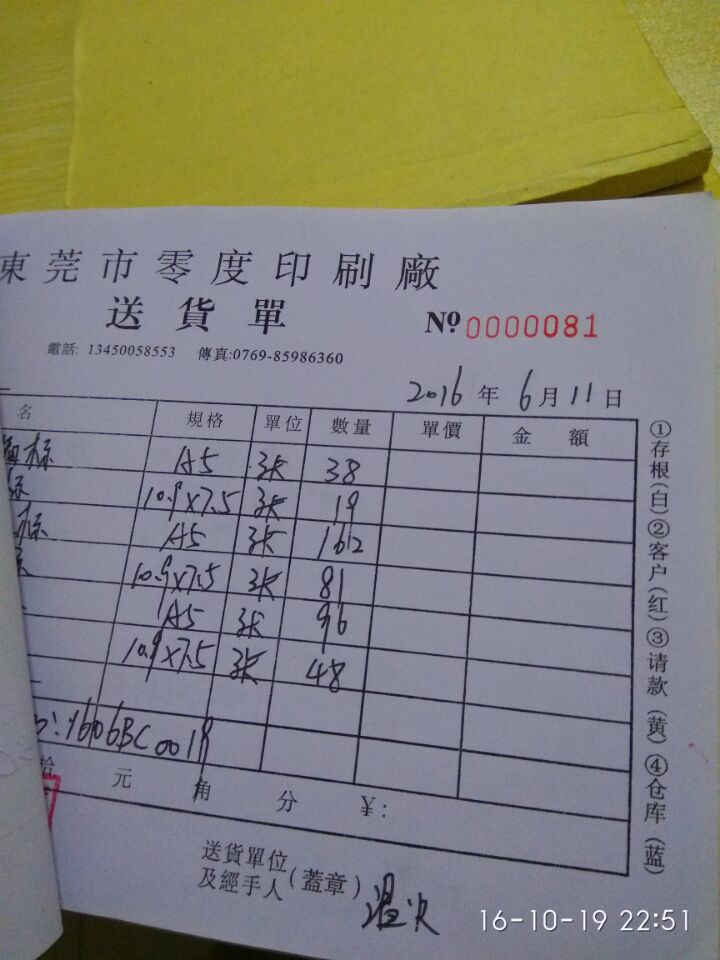 東莞市零度印刷廠
送貨單
№ 0000081
電話: 13450058553 傳真:0769-85986360
2016 年 6 月 11 日
名 規格 單位 數量 單價 金額
标 A5 张 38
标 10.9×7.5 张 19
标 A5 张 162
10.9×7.5 张 81
A5 张 96
10.9×7.5 张 48
拾 元 角 分 ¥:
送貨單位
及經手人 (蓋章)
①存根(白)②客户(红)③请款(黄)④仓库(蓝)
16-10-19 22:51